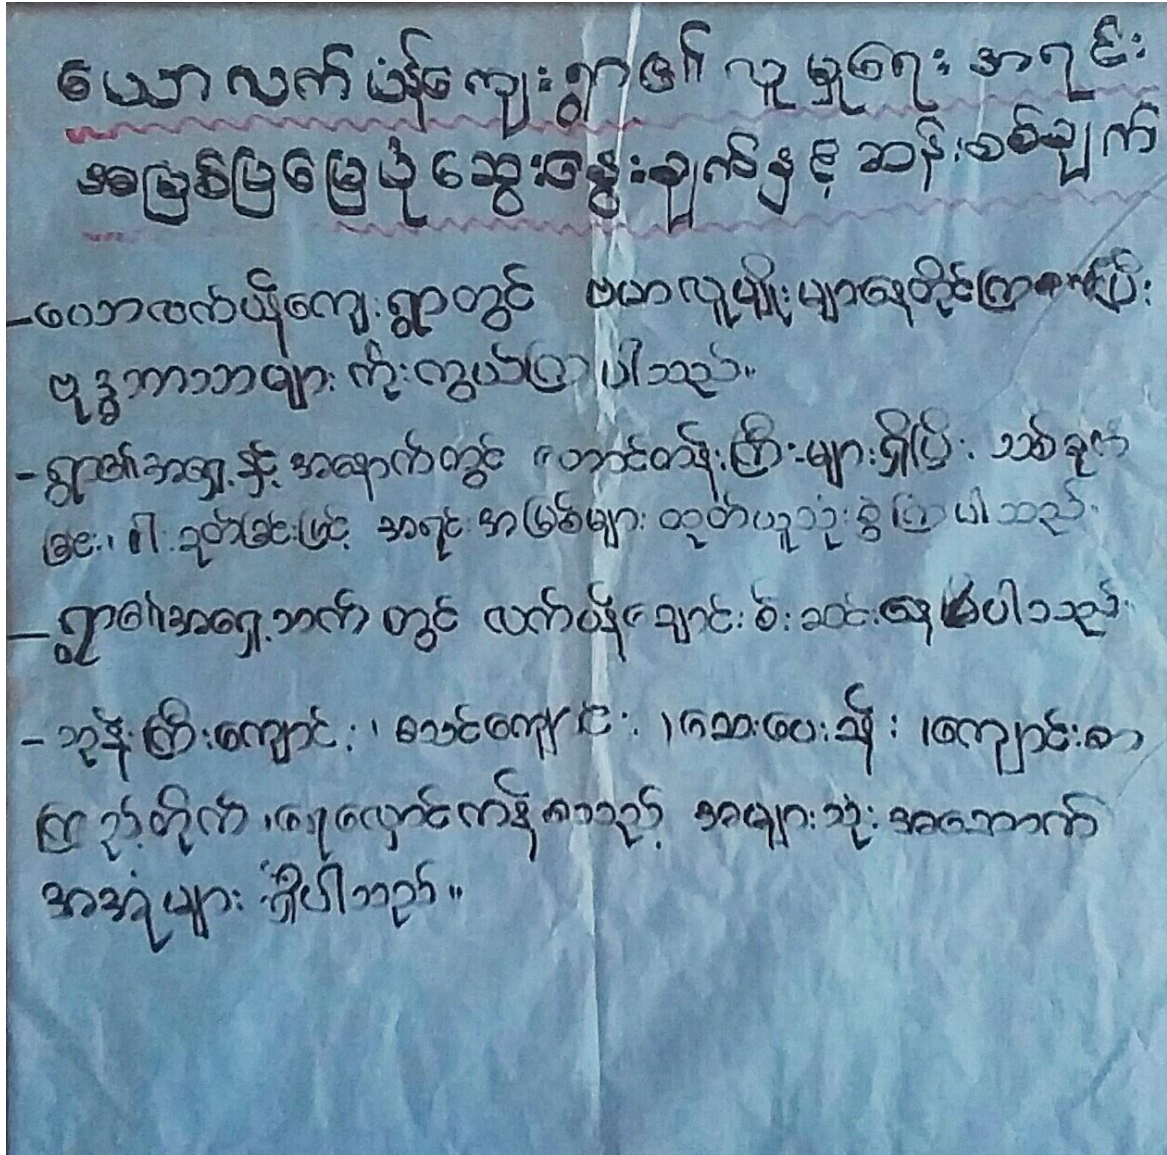 ယောလက်ပံန်ကျေးရွာ၏ လူမှုရေး အရင်း
အမြစ်မြမြေပုံဆွေးနွေးချက်နှင့် ဆန်းစစ်ချက်
-ယောလက်ပံန်ကျေးရွာတွင် ဗမာလူမျိုးများနေထိုင်ကြ ပြီး
ဗုဒ္ဓဘာသာများ ကိုးကွယ်ကြပါသည်။
-ရွာ၏အရှေ့နှင့် အနောက်တွင် တောင်တန်းကြီးများရှိပြီး သစ်ခုတ်
ခြင်း၊ ဝါးခုတ်ခြင်းဖြင့် အရင်းအမြစ်များ ထုတ်ယူသုံးစွဲကြပါသည်။
-ရွာ၏အရှေ့ဘက်တွင် လက်ပံန်ချောင်းစီးဆင်းနေပါသည်။
-ဘုန်းကြီးကျောင်း၊ စာသင်ကျောင်း၊ ဆေးပေးခန်း၊ ကျောင်းစာ
ကြည့်တိုက်၊ ရေလှောင်ကန်စသည့် အများသုံး အဆောက်
အအုံများ ရှိပါသည်။